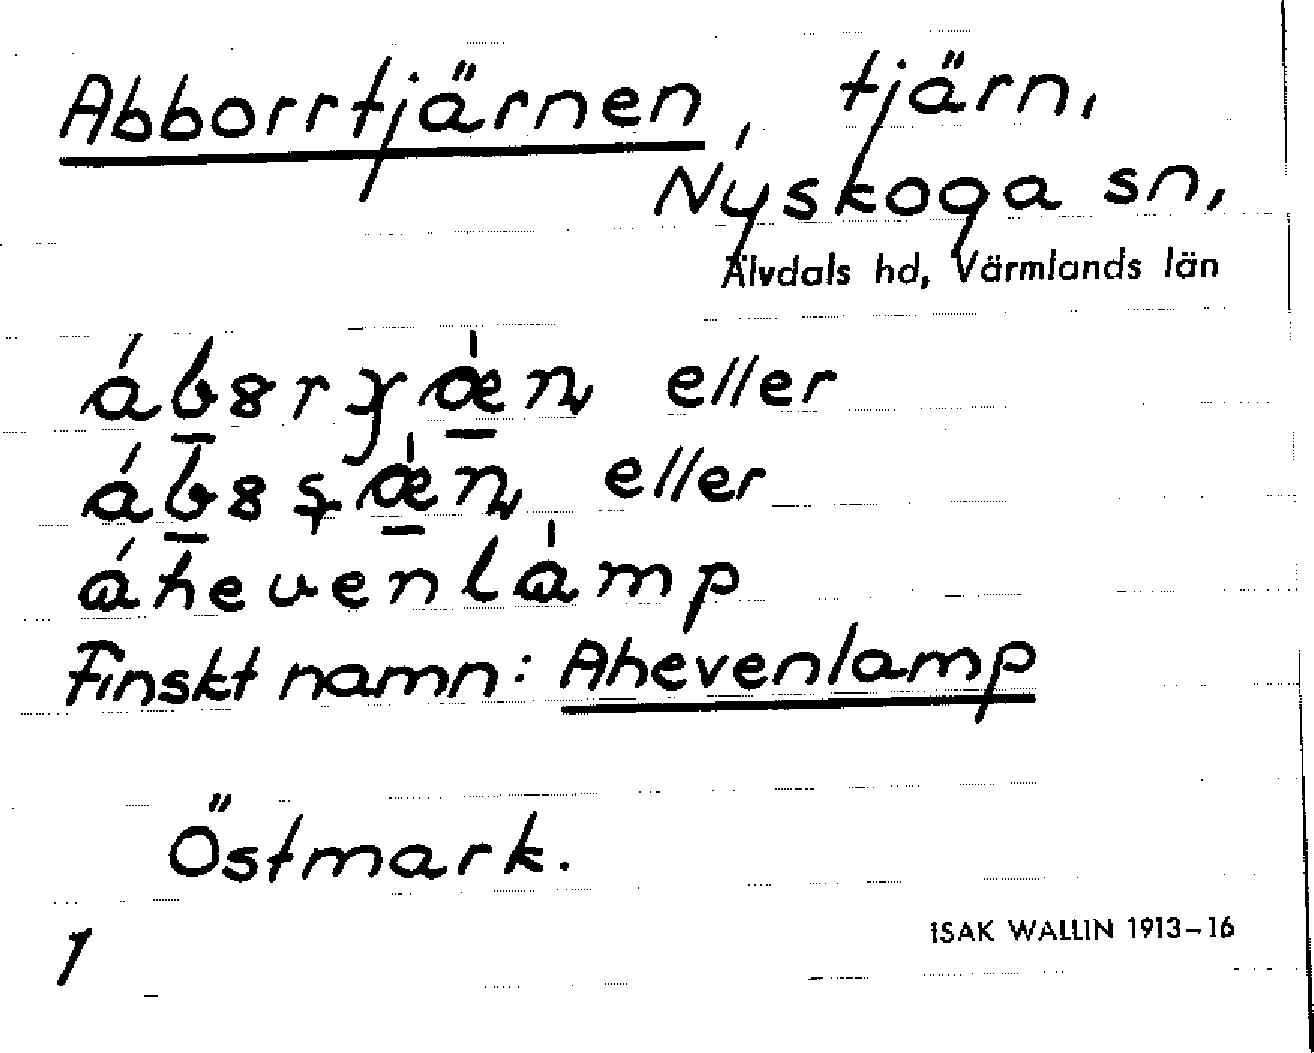 Abborrtjärnen, tjärn,
Nyskoga sn,
Älvdals hd, Värmlands län
eller
eller
áhevenlámp
Finskt namn: Ahevenlamp
Östmark.
1
ISAK WALLIN 1913–16